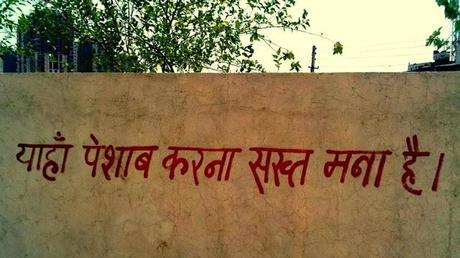 याहाँ पेशाब करना सख्त मना है।